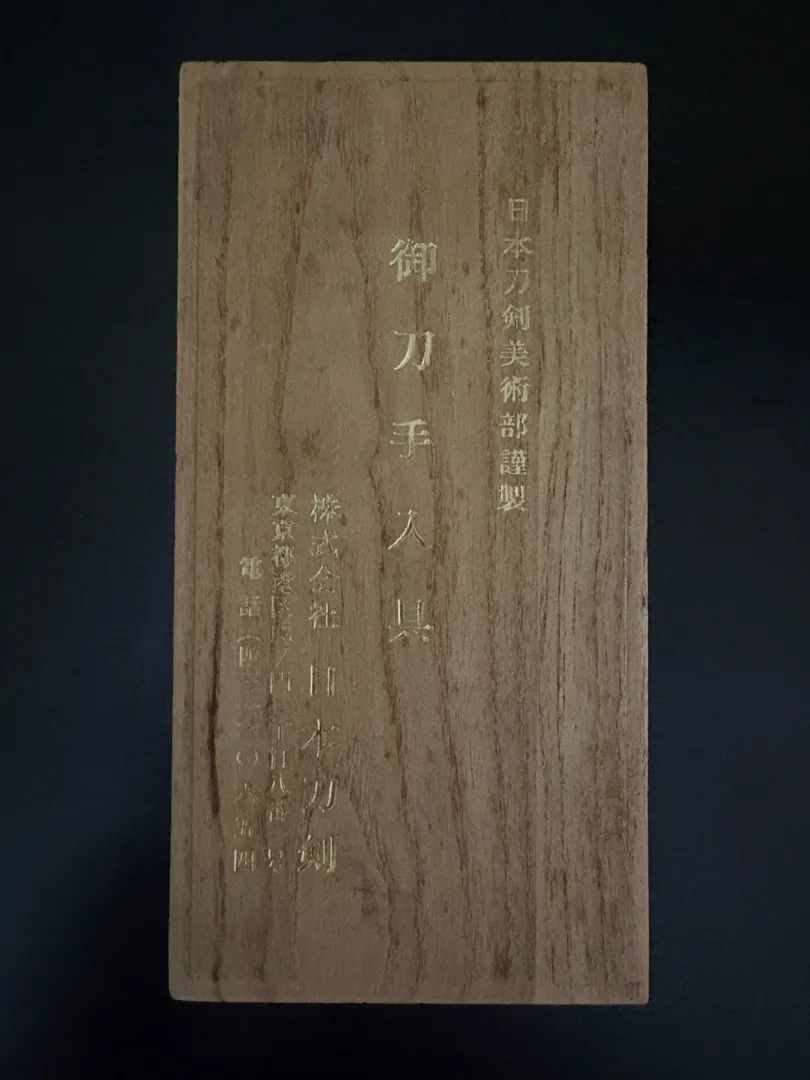 日本刀剣美術部謹製
御刀手入具
株式会社 日本刀剣
東京都港区虎ノ門 丁目八番 号
電話(四三 〇六五四